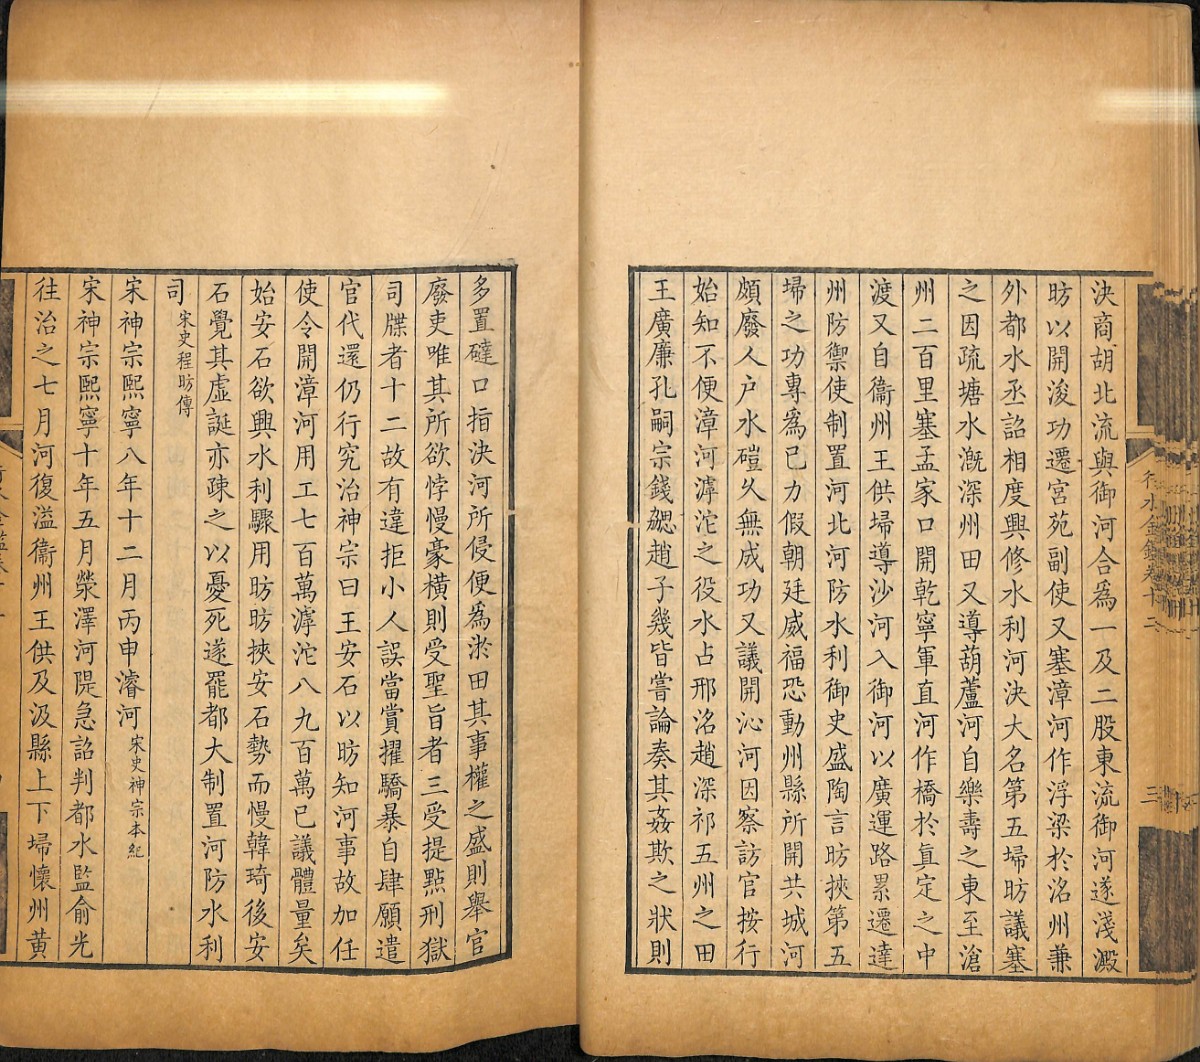 決商胡北流與御河合爲一及二股東流御河遂淺澱
昉以開浚功遷宮苑副使又塞漳河作浮梁於洺州兼
外都水丞詔相度興修水利河決大名第五埽昉議塞
之因疏塘水漑深州田又導葫蘆河自樂壽之東至滄
州二百里塞孟家口開乾寧軍直河作橋於眞定之中
渡又自衞州王供埽導沙河入御河以廣運路累遷達
州防禦使制置河北河防水利御史盛陶言昉挾第五
埽之功專爲已力假朝廷威福恐動州縣所開共城河
頗廢人户水磑久無成功又議開沁河因察訪官按行
始知不便漳河滹沱之役水占邢洺趙深祁五州之田
王廣廉孔嗣宗錢勰趙子幾皆嘗論奏其姦欺之狀則
多置䃮口指決河所侵便爲淤田其事權之盛則舉官
廢吏唯其所欲悖慢豪橫則受聖旨者三受提㸃刑獄
司牒者十二故有違拒小人誤當賞擢驕暴自肆願遣
官代還仍行究治神宗曰王安石以昉知河事故加任
使令開漳河用工七百萬滹沱八九百萬已議體量矣
始安石欲興水利驟用昉昉挾安石勢而慢韓琦後安
石覺其虛誕亦疎之以憂死遂罷都大制置河防水利
司 宋史程昉傳
宋神宗熙寧八年十二月丙申濬河 宋史神宗本紀
宋神宗熙寧十年五月滎澤河隄急詔判都水監俞光
往治之七月河復溢衞州王供及汲縣上下埽懷州黃
行水金鑑卷十二
三